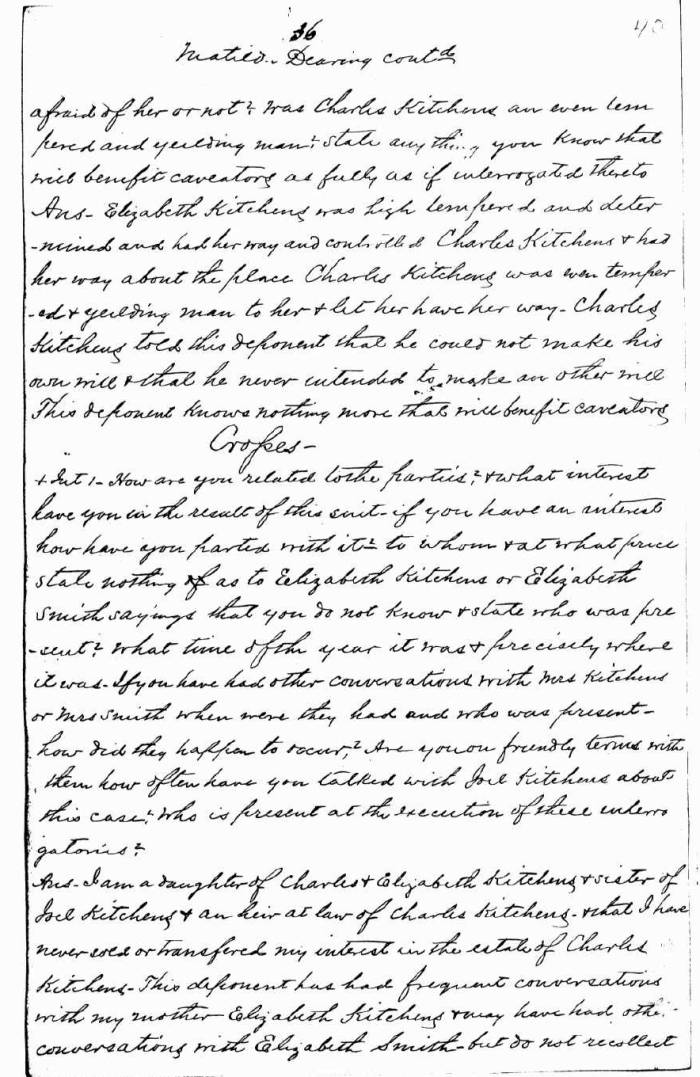 36
40
Matild. Dearing contd
afraid of her or not? Was Charles Kitchens an even tem
pered and yeilding man? State any thing you Know that
will benefit caveators as fully as if interrogated thereto
Ans- Elizabeth Kitchens was high tempered and deter
-mined and had her way and controlled Charles Kitchens & had
her way about the place Charles Kitchens was even temper
-ed & yeilding man to her & let her have her way- Charles
Kitchens told this deponent that he could not make his
own will & that he never intended to make an other will
This deponent Knows nothing more that will benefit caveators
Crosses-
+ Int 1- How are you related to the parties? & what interest
have you in the result of this suit- if you have an interest
how have you parted with it? to whom & at what price
state nothing as to Eelizabeth Kitchens or Elizabeth
Smith sayings that you do not know & state who was pre
-sent? What time of the year it was & precisely where
it was- If you have had other conversations with Mrs Kitchens
or Mrs Smith when were they had and who was present-
how did they happen to occur? Are you on friendly terms with
them how often have you talked with Joel Kitchens about
this case? Who is present at the execution of these interro
gatories?
Ans- I am a daughter of Charles & Elizabeth Kitchens & sister of
Joel Kitchens & an heir at law of Charles Kitchens- & that I have
never sold or transfered my interest in the estate of Charles
Kitchens- This deponent has had frequent conversations
with my mother Elizabeth Kitchens & may have had othe.
conversations with Elizabeth Smith- but do not recollect